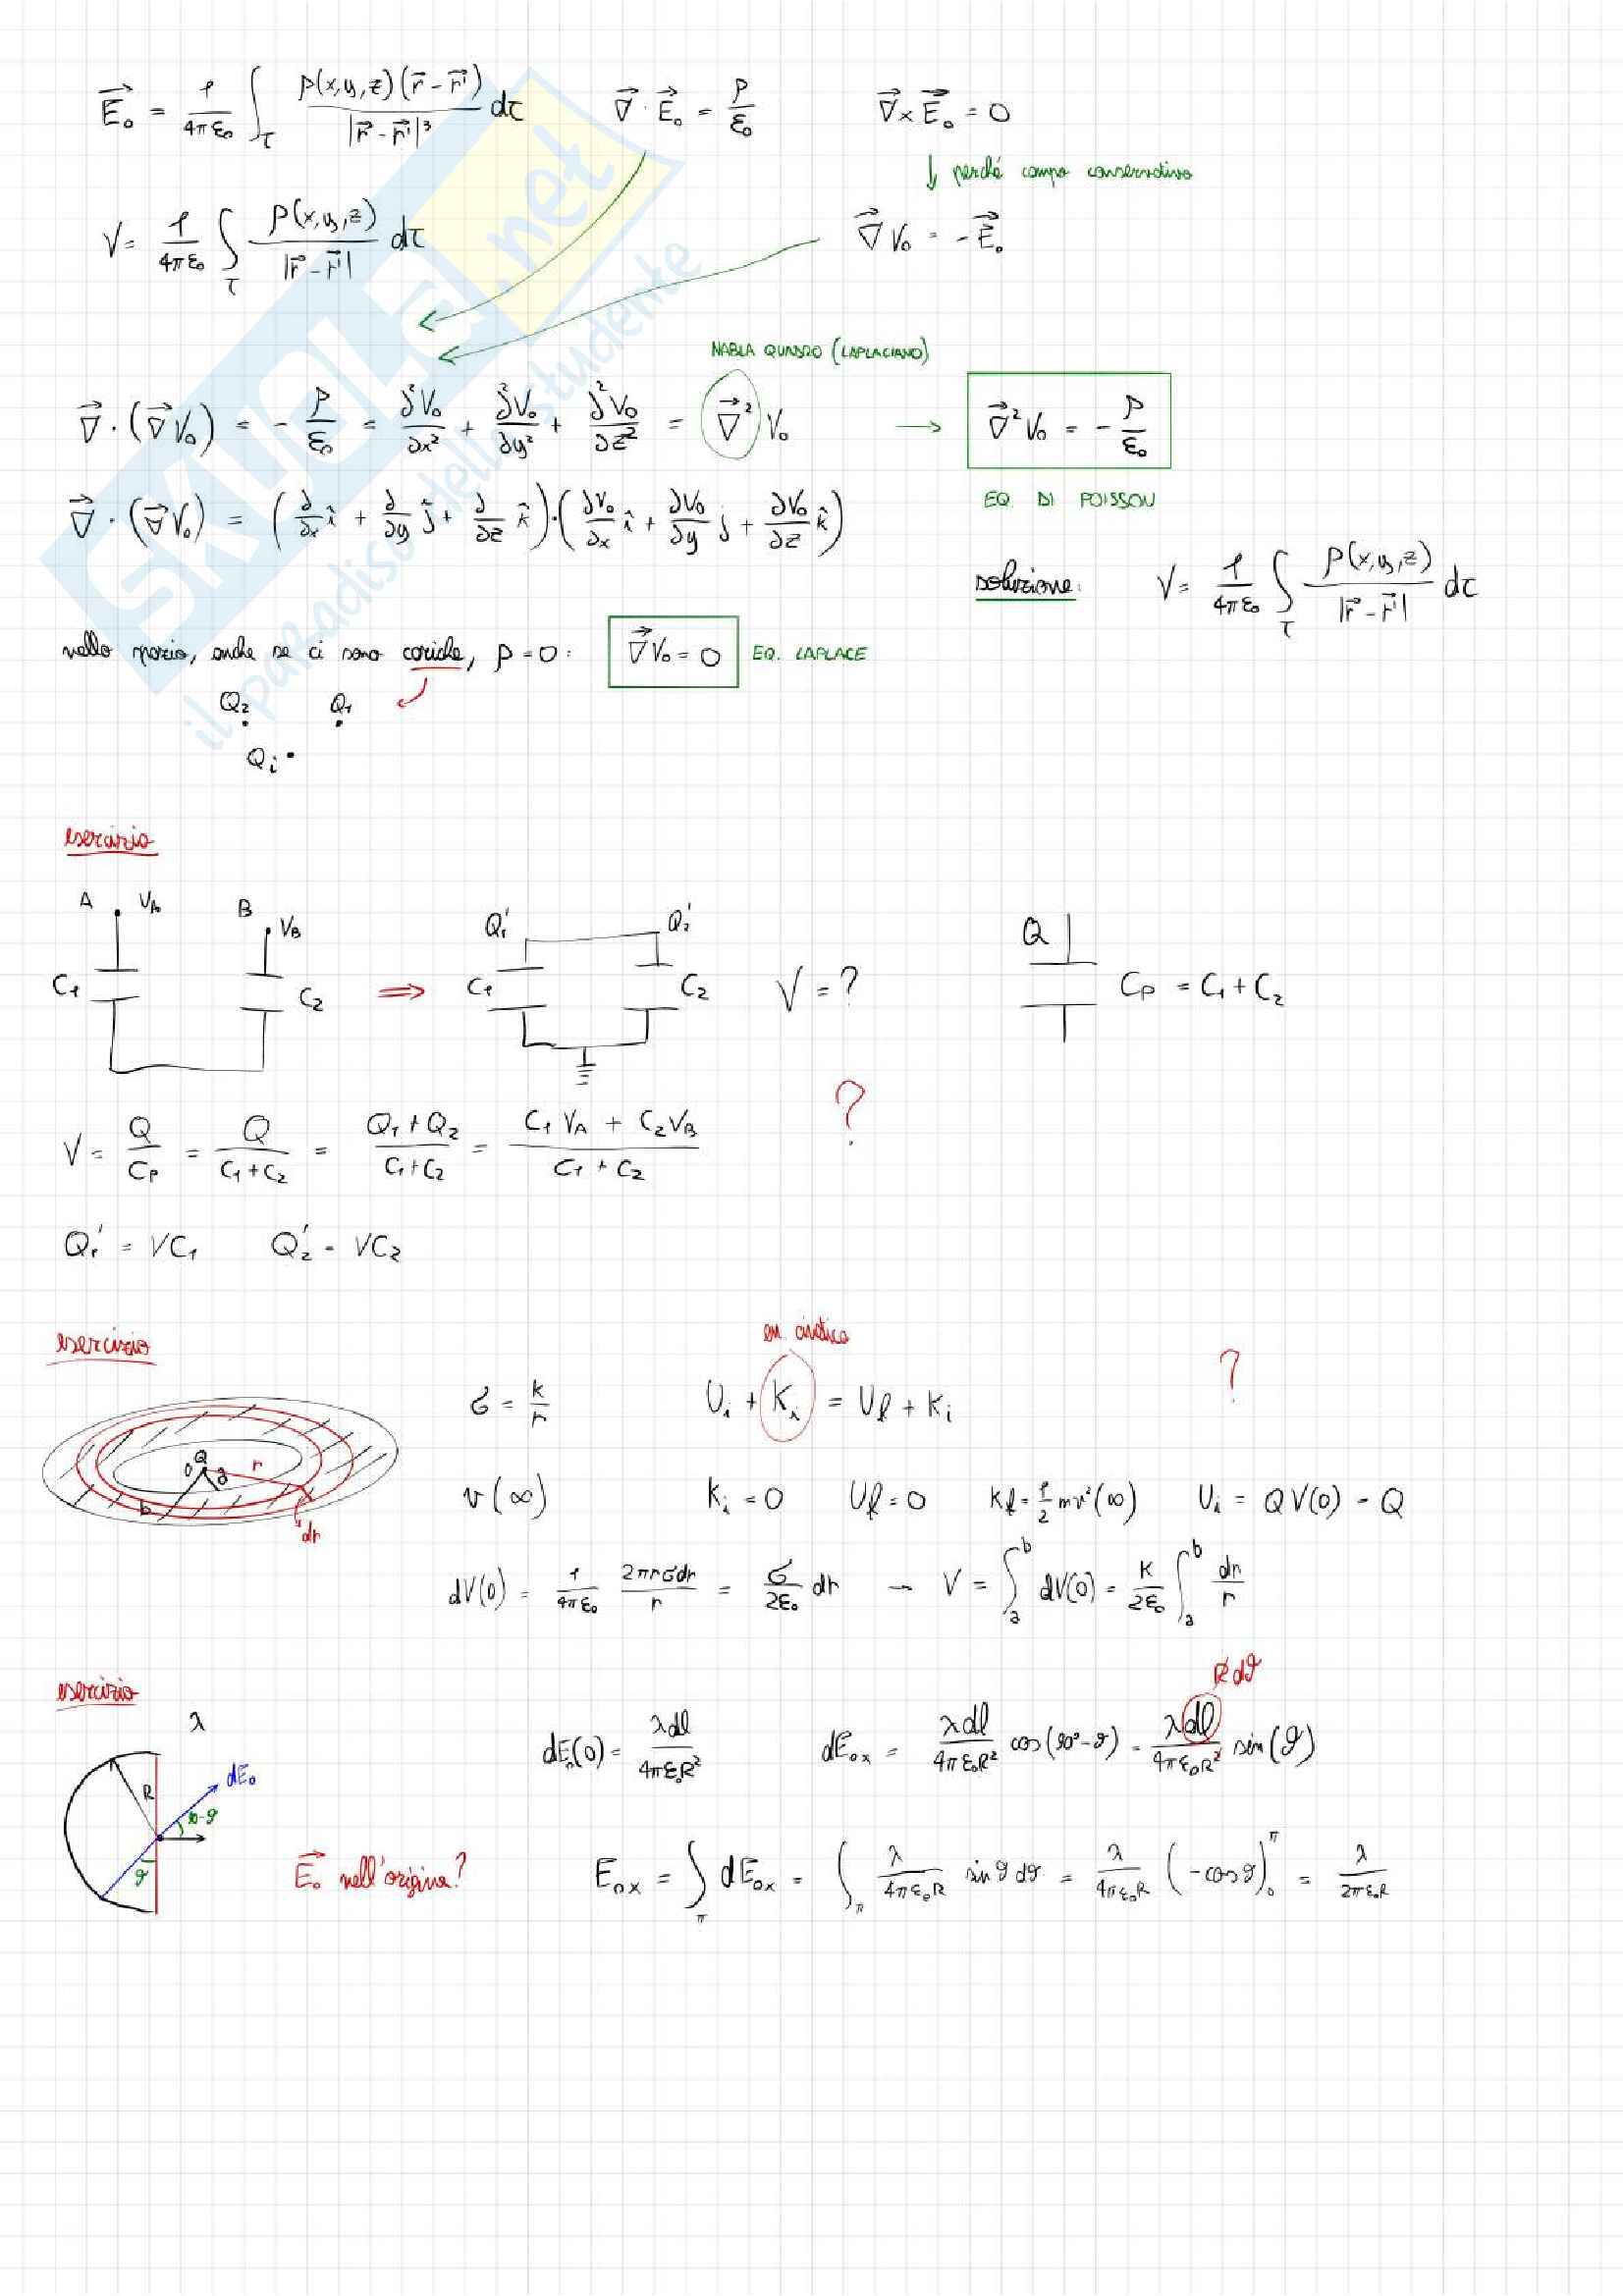 E₀ = 1/4πε₀ ∫τ ρ(x,y,z)(r⃗ - r⃗')/|r⃗ - r⃗'|³ dτ    ∇⃗ · E⃗₀ = ρ/ε₀    ∇⃗ × E⃗₀ = 0
↓ perché campo conservativo
V = 1/4πε₀ ∫τ ρ(x,y,z)/|r⃗ - r⃗'| dτ    ∇⃗ V₀ = - E⃗₀
NABLA QUADRO (LAPLACIANO)
∇⃗ · (∇⃗ V₀) = - ρ/ε₀ = ∂²V₀/∂x² + ∂²V₀/∂y² + ∂²V₀/∂z² = ∇⃗² V₀ → ∇⃗² V₀ = - ρ/ε₀
EQ. DI POISSON
∇⃗ · (∇⃗ V₀) = (∂/∂x î + ∂/∂y ĵ + ∂/∂z k̂) · (∂V₀/∂x î + ∂V₀/∂y j + ∂V₀/∂z k̂)
soluzione: V = 1/4πε₀ ∫τ ρ(x,y,z)/|r⃗ - r⃗'| dτ
nello spazio, anche se ci sono cariche, ρ = 0 : ∇⃗ V₀ = 0 EQ. LAPLACE
Q₂ Q₁
Qi
esercizio
A VA B VB Q₁' Q₂' Q
C₁ C₂ ⇒ C₁ C₂ V = ? Cp = C₁ + C₂
V = Q/Cp = Q/(C₁ + C₂) = (Q₁ + Q₂)/(C₁ + C₂) = (C₁ VA + C₂ VB)/(C₁ + C₂) ?
Q₁' = VC₁ Q₂' = VC₂
esercizio
en. cinetica
σ = k/r Ui + Ki = Uf + Ki ?
Q 0 a r b dr
v(∞) Ki = 0 Uf = 0 Kf = 1/2 mv²(∞) Ui = QV(0) - Q
dV(0) = 1/4πε₀ 2πrσdr/r = σ/2ε₀ dr → V = ∫ₐᵇ dV(0) = K/2ε₀ ∫ₐᵇ dr/r
esercizio
R dϑ
λ
dE₀(0) = λdl/4πε₀R² dE₀x = λdl/4πε₀R² cos(90° - ϑ) = λdl/4πε₀R² sin(ϑ)
R dE₀ 90-ϑ ϑ
E⃗₀ nell'origine? E₀x = ∫π dE₀x = ∫π λ/4πε₀R sinϑ dϑ = λ/4πε₀R (-cosϑ)₀^π = λ/2πε₀R
SKUOLA.net
il paradiso dello studente